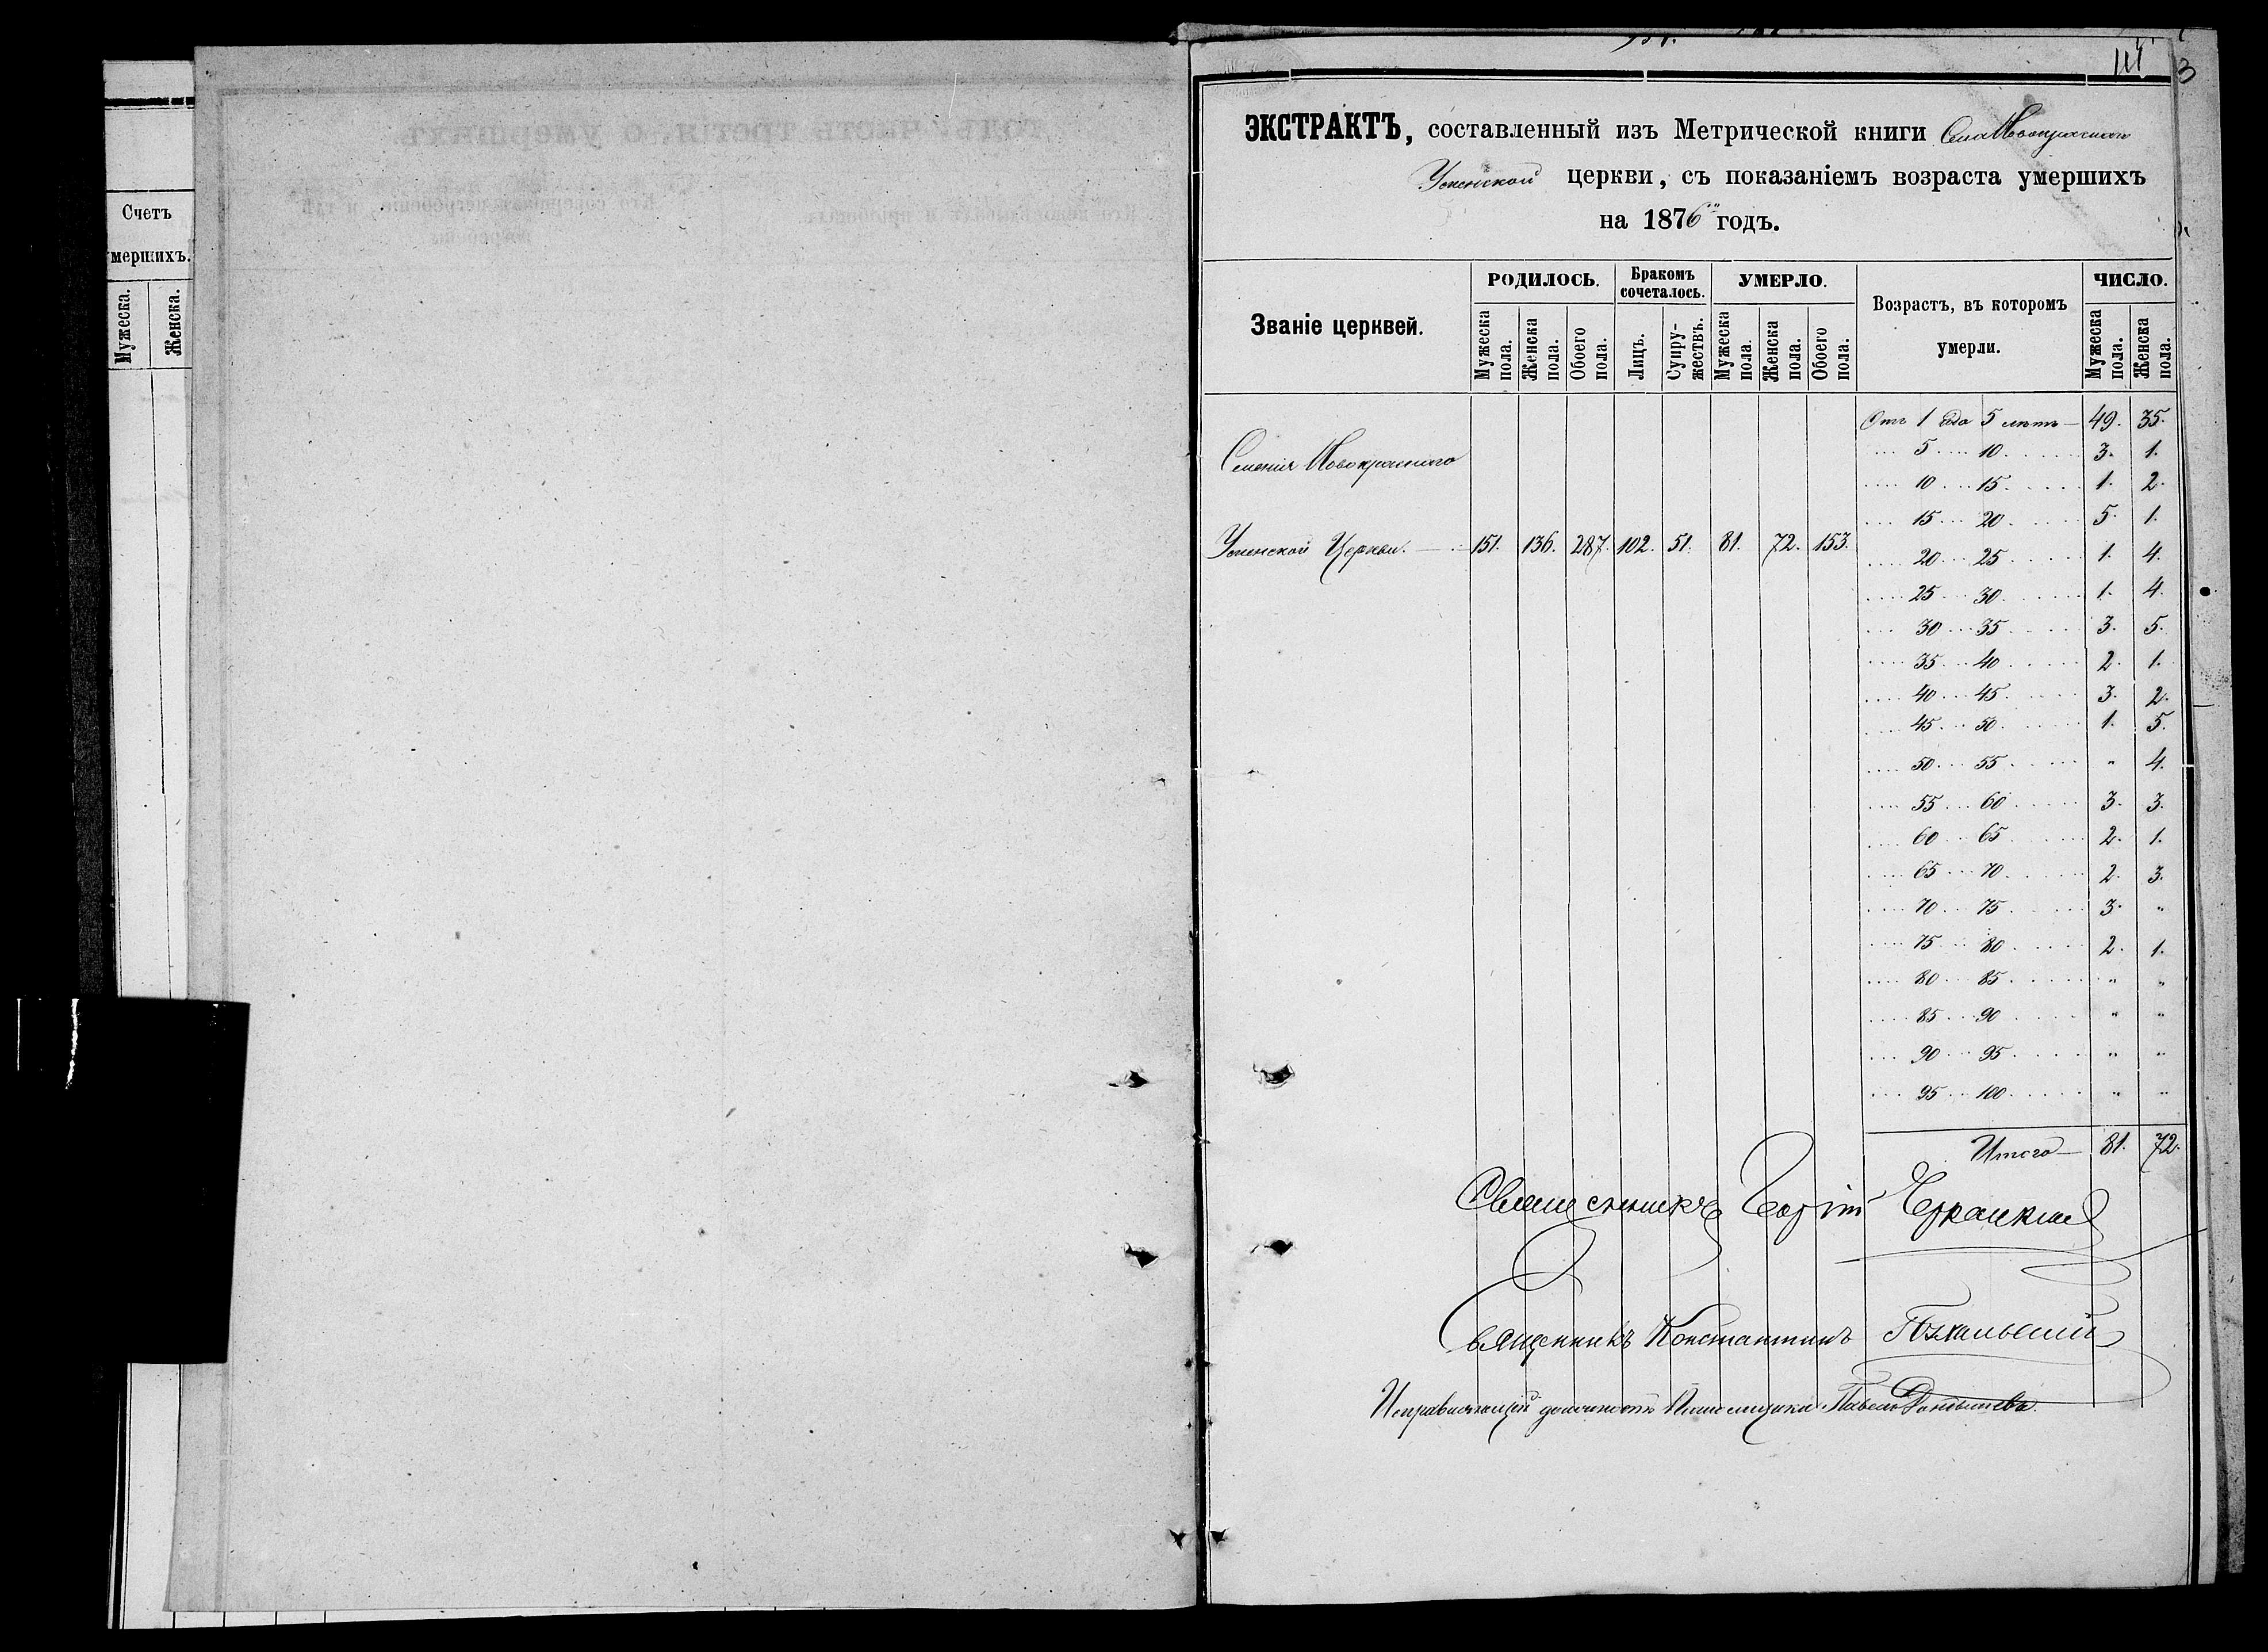 Счетъ
умершихъ.
Мужеска.
Женска.
ЭКСТРАКТЪ, составленный изъ Метрической книги Села Новокраснаго
Успенской церкви, съ показаніемъ возраста умершихъ
на 1876 годъ.
Званіе церквей.
РОДИЛОСЬ.
Бракомъ сочеталось.
УМЕРЛО.
Возрастъ, въ которомъ умерли.
ЧИСЛО.
Мужеска пола. Женска пола. Обоего пола. Лицъ. Супружествъ. Мужеска пола. Женска пола. Обоего пола. Мужеска пола. Женска пола.
Селенія Новокраснаго
Успенской Церкви. 151. 136. 287. 102. 51. 81. 72. 153.
Отъ 1 до 5 летъ 49. 35.
5 10 3. 1.
10 15 1. 2.
15 20 5. 1.
20 25 1. 4.
25 30 1. 4.
30 35 3. 5.
35 40 2. 1.
40 45 3. 2.
45 50 1. 5.
50 55 " 4.
55 60 3. 3.
60 65 2. 1.
65 70 2. 3.
70 75 3. "
75 80 2. 1.
80 85 " "
85 90 " "
90 95 " "
95 100 " "
Итого 81. 72.
Священникъ
Священникъ Константинъ
Исправляющій должность Псаломщика Павелъ